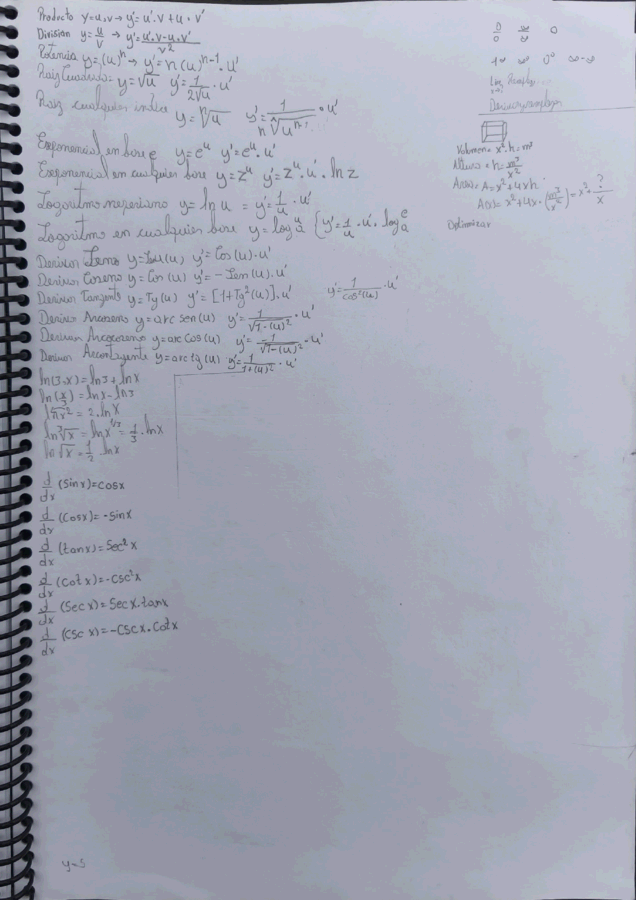 Producto y=u.v → y'=u'.v+u.v'
Division y=u/v → y'=u'.v-u.v'/v²
Potencia y=(u)ⁿ → y'=n(u)ⁿ⁻¹.u'
Raiz Cuadrada y=√u y'=1/2√u . u'
Raiz cualquier indice y=ⁿ√u y'=1/n ⁿ√uⁿ⁻¹ . u'
Exponencial en base e y=eᵘ y'=eᵘ.u'
Exponencial en cualquier base y=zᵘ y'=zᵘ.u'.ln z
Logaritmo neperiano y=ln u = y'=1/u . u'
Logaritmo en cualquier base y=log {y'=1/u . u'. log
Derivar Seno y=Sen(u) y'=Cos(u).u'
Derivar Coseno y=Cos(u) y'=-Sen(u).u'
Derivar Tangente y=Tg(u) y'=[1+Tg²(u)].u' y'=1/cos²(u) . u'
Derivar Arcoseno y=arc sen(u) y'=1/√1-(u)² . u'
Derivar Arcocoseno y=arc Cos(u) y'=-1/√1-(u)² . u'
Derivar Arcotangente y=arc tg(u) y'=1/1+(u)² . u'
ln(3.x)=ln3+lnx
ln(x/3)=lnx-ln3
x²=2.lnx
ln³√x=lnx^1/3=1/3.lnx
ln√x=1/2.lnx
d/dx (Sinx)=Cosx
d/dx (Cosx)=-Sinx
d/dx (tanx)=Sec²x
d/dx (Cotx)=-Csc²x
d/dx (Secx)=Secx.tanx
d/dx (Cscx)=-Cscx.Cotx
y=5
0/0 ∞/∞ 0
1∞ ∞⁰ 0⁰ ∞-∞
Volumen= x².h=m³
Altura=h=m³/x²
Area= A=x²+4xh
A(x)=x²+4x.(m³/x²)=x²+?/x
Optimizar